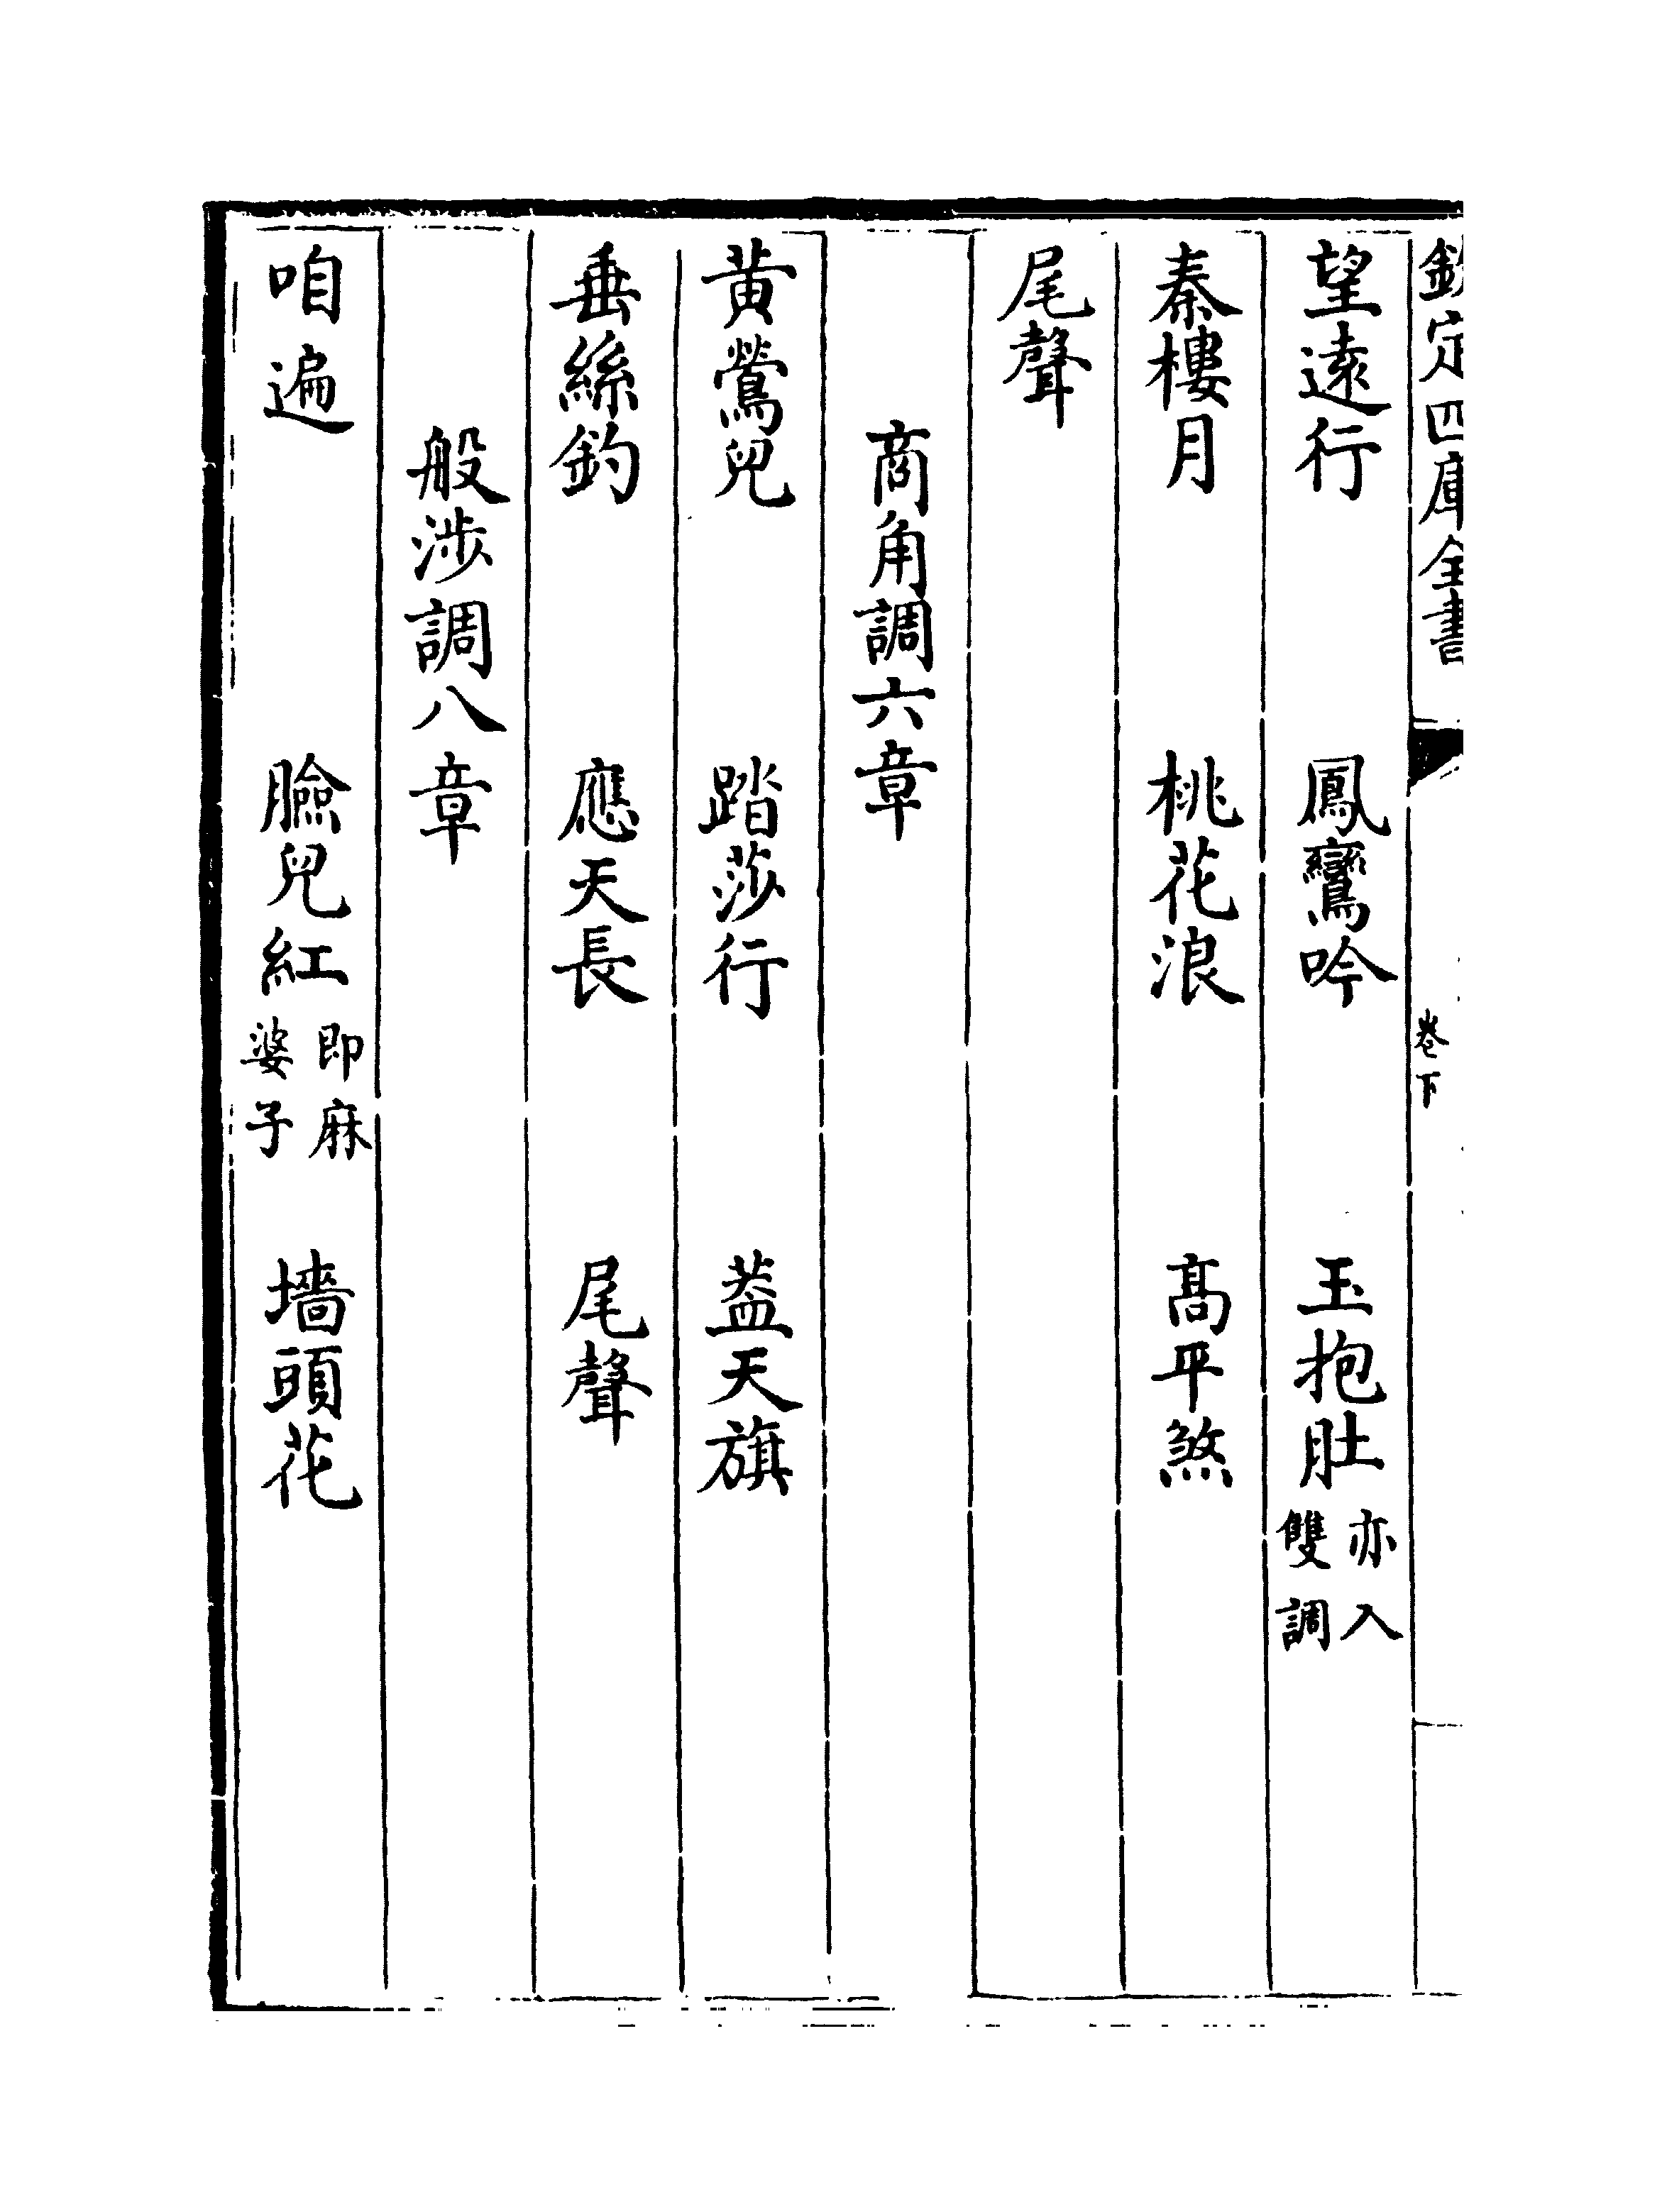 欽定四庫全書
卷下
望遠行 鳳鸞吟 玉抱肚亦入雙調
秦樓月 桃花浪 髙平煞
尾聲
商角調六章
黄鶯兒 踏莎行 葢天旗
垂絲釣 應天長 尾聲
般涉調八章
咱遍 臉兒紅即麻婆子 墻頭花